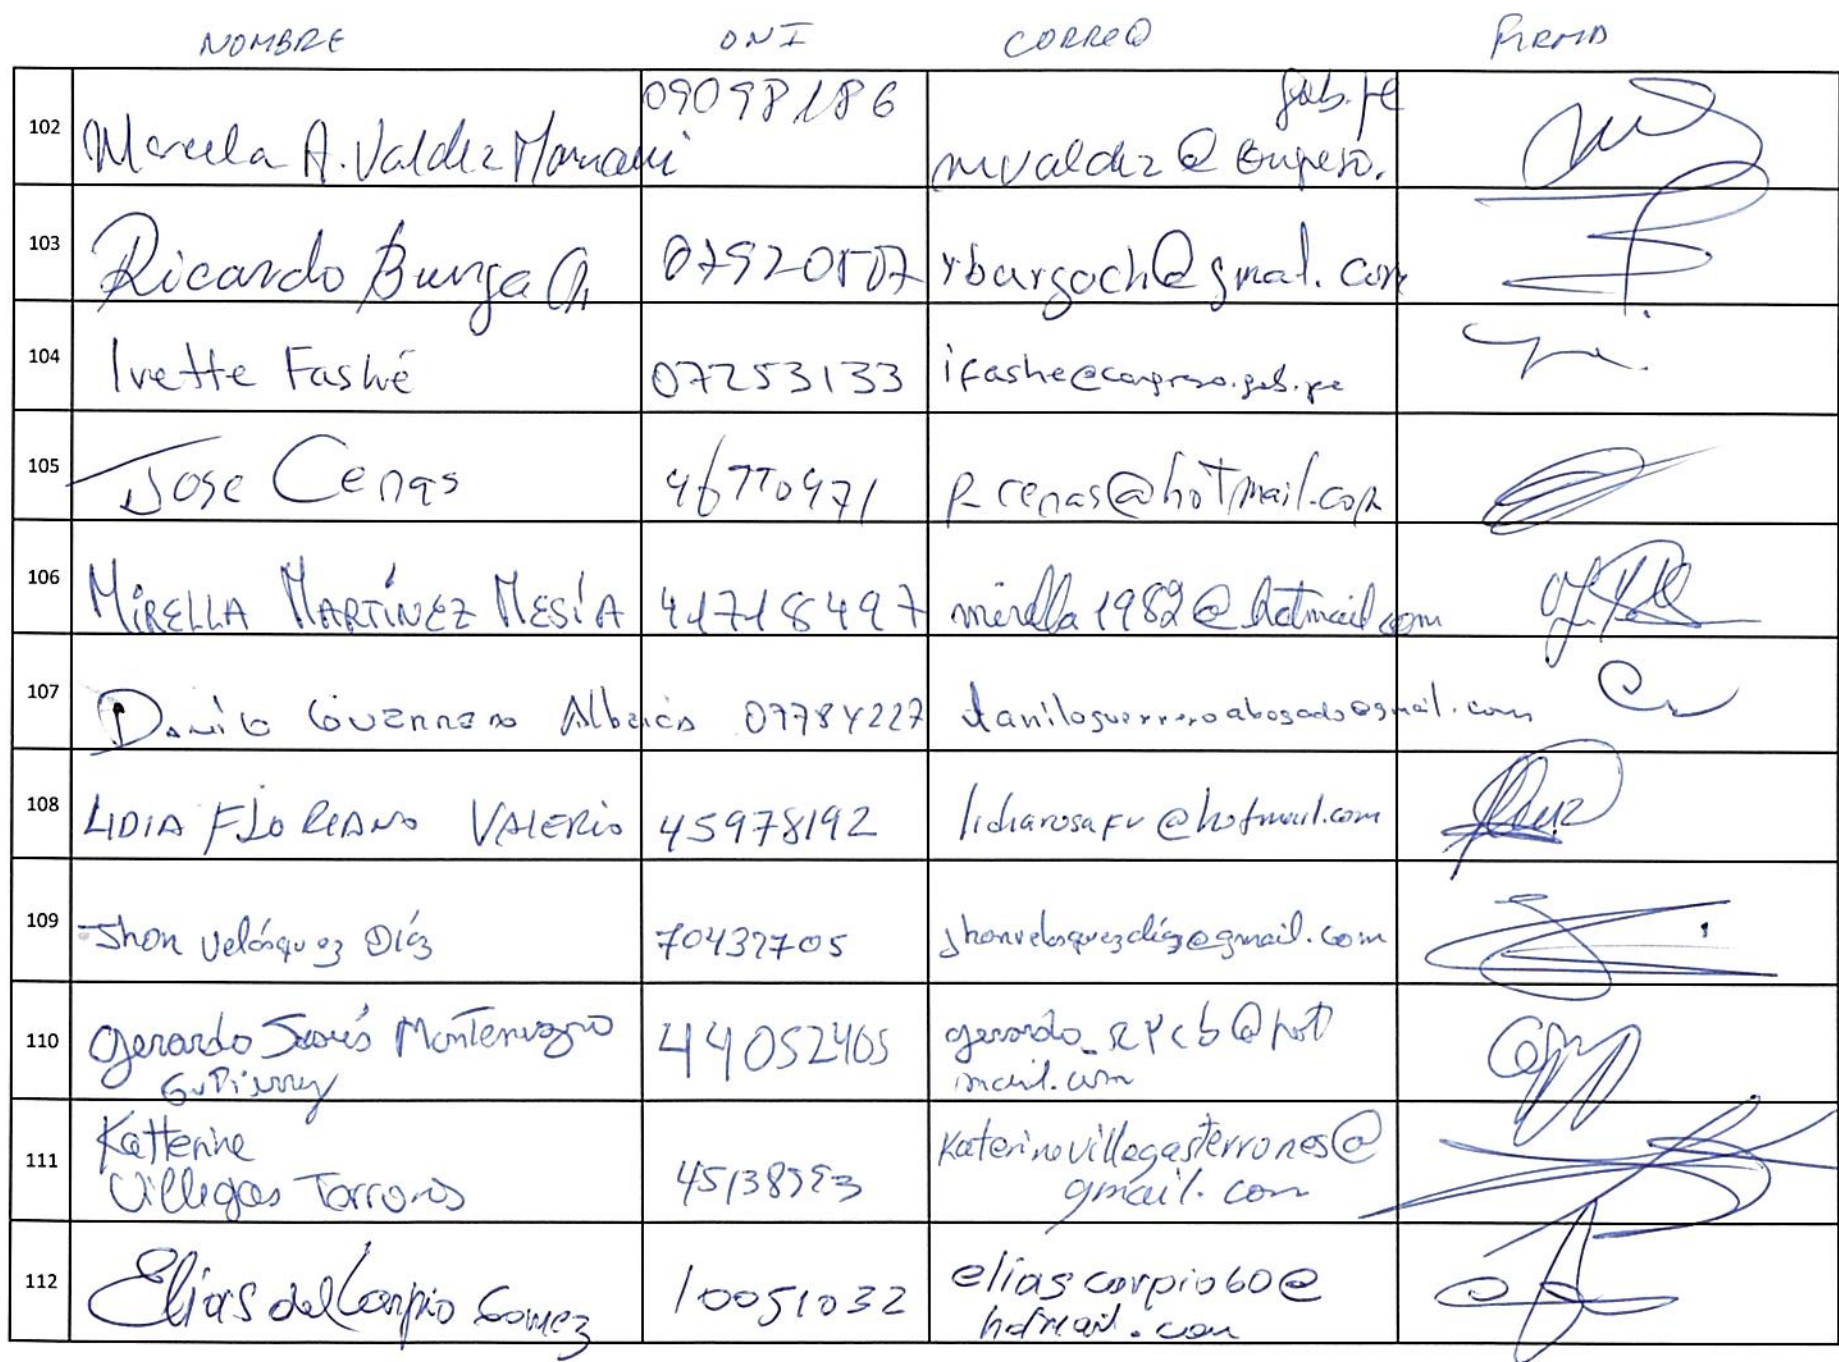 NOMBRE DNI CORREO FIRMA
102 Marcela A. Valdez Mamani 09098186 mvaldez@congreso.gob.pe
103 Ricardo Burga Ch 07920507 rburgach@gmal.com
104 Ivette Fashé 07253133 ifashe@congreso.gob.pe
105 Jose Cenas 46770971 p_cenas@hotmail.com
106 MIRELLA MARTÍNEZ MESÍA 41718497 mirella1982@hotmail.com
107 Danilo Guerrero Albercis 07784227 daniloguerreroabogado@gmail.com
108 LIDIA FLOREANO VALERIO 45978192 lidiarosafv@hotmail.com
109 Jhon Velásquez Díaz 70437705 jhonvelasquezdiaz@gmail.com
110 Gerardo Jesús Montenegro 44052405 gerardo_RPCB@hot
Gutierrez mail.com
111 Katterine Katerinevillegasterrones@
Villegas Terrones gmail.com
112 Elias del Carpio Gomez 10051032 eliascarpio60@
hotmail.com